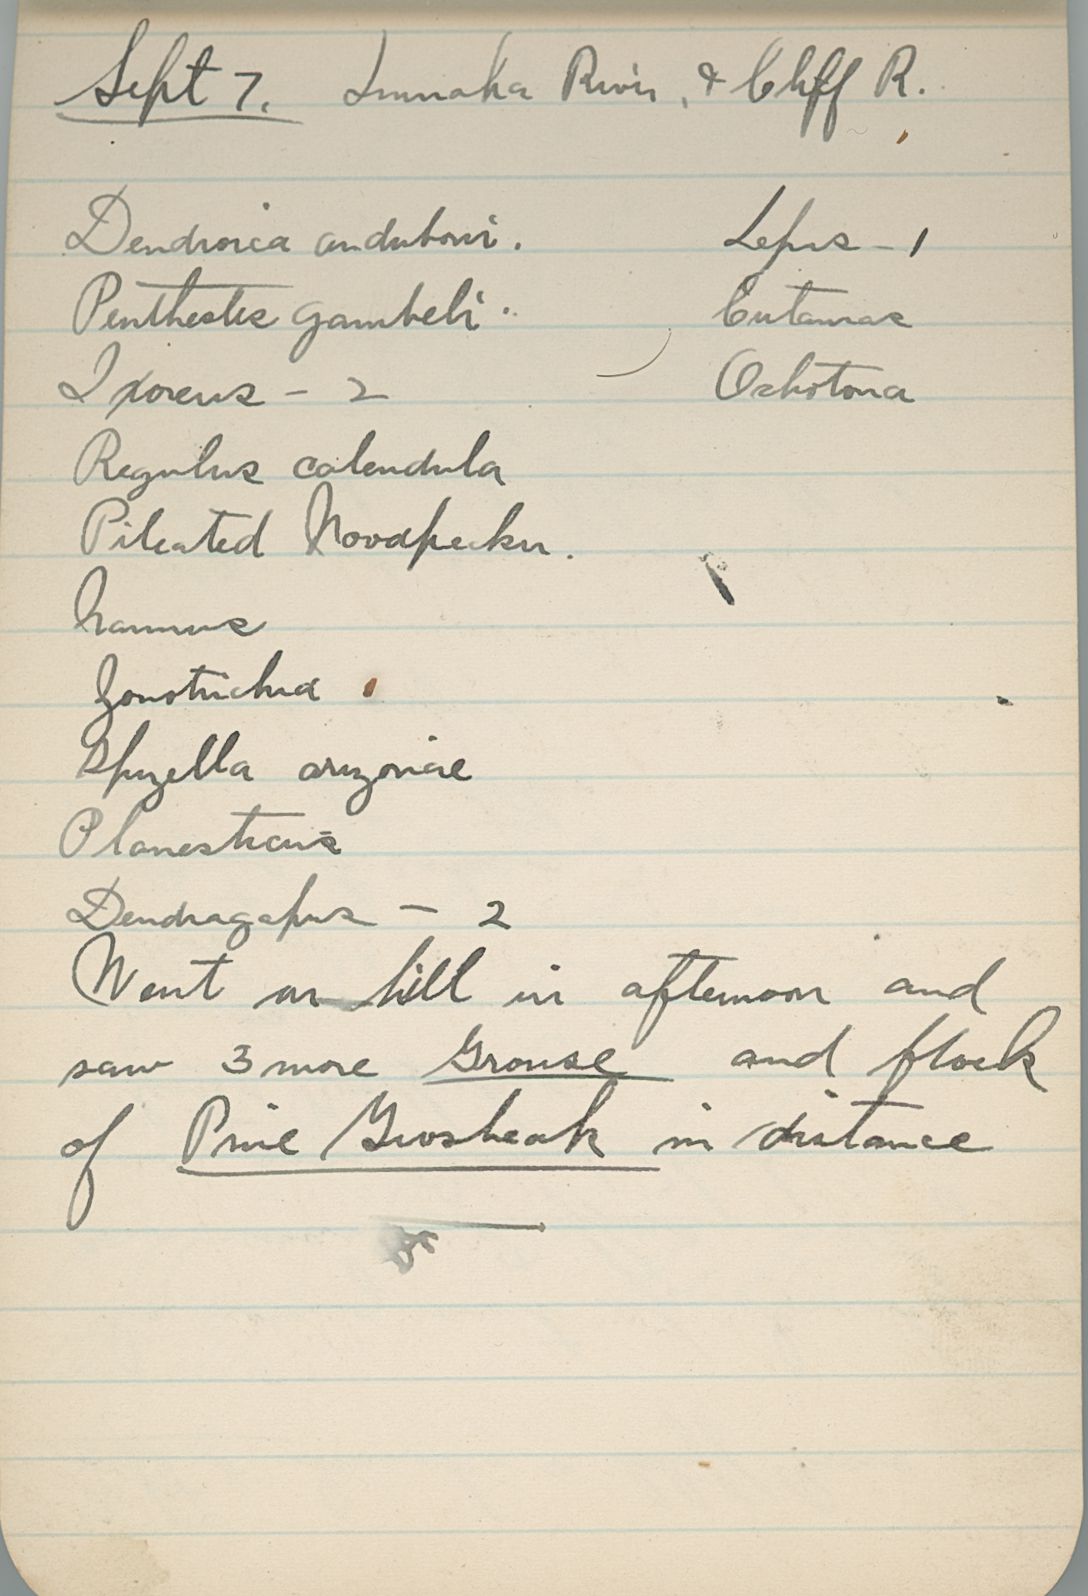 Sept 7. Imnaha River, & Cliff R.
Dendroica auduboni. Lepus - 1
Penthestes gambeli. Eutamias
Ixoreus - 2 Ochotona
Regulus calendula
Pileated Woodpecker.
Nannus
Zonotrichia
Spizella arizonae
Planesticus
Dendragapus - 2
Went on hill in afternoon and
saw 3 more Grouse and flock
of Pine Grosbeak in distance